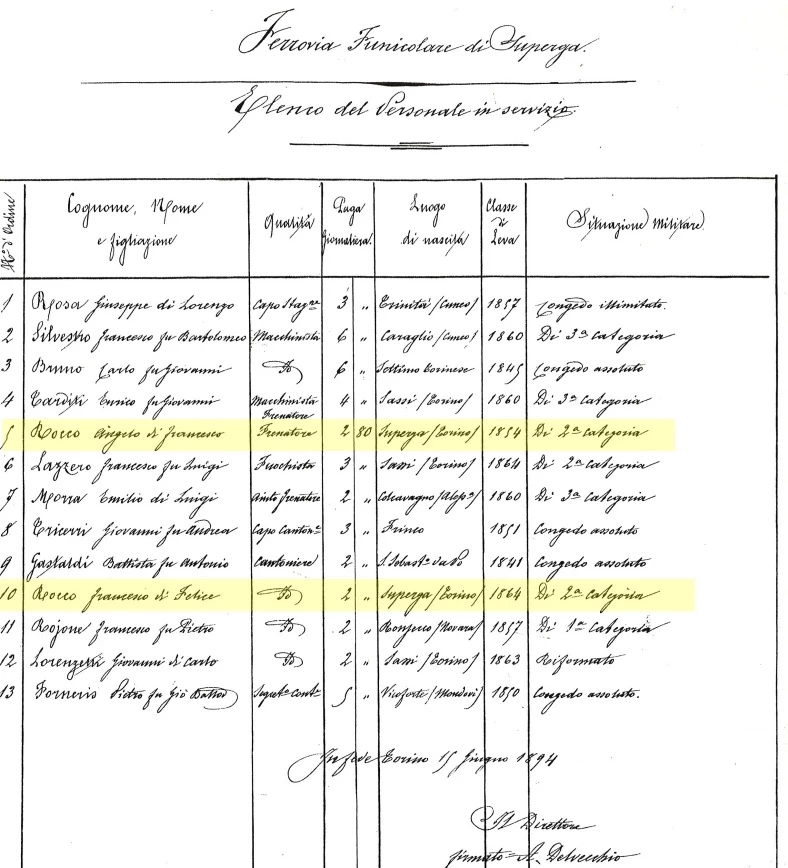 Ferrovia Funicolare di Superga.
Elenco del Personale in servizio.
N.o d'Ordine
Cognome, Nome e figliazione
Qualità
Paga giornaliera.
Luogo di nascità
Classe di Leva
Situazione Militare.
1 Rosa Giuseppe di Lorenzo Capo Stagne 3 „ Trinità (Cuneo) 1857 Congedo illimitato.
2 Silvestro francesco fu Bartolomeo Macchinista 6 „ Caraglio (Cuneo) 1860 Di 3a Categoria
3 Bruno Carlo fu Giovanni Do 6 „ Settimo Torinese 1845 Congedo assoluto
4 Tarditi Enrico fu Giovanni Macchinista Frenatore 4 „ Sassi (Torino) 1860 Di 3a Categoria
5 Rocco Angelo di francesco Frenatore 2 80 Superga (Torino) 1854 Di 2a Categoria
6 Lazzero francesco fu Luigi Fuochista 3 „ Sassi (Torino) 1864 Di 2a Categoria
7 Morra Emilio di Luigi Aiuto frenatore 2 „ Colcavagno 1860 Di 3a Categoria
8 Tricerri Giovanni fu Andrea Capo Canton.e 3 „ Frinco 1851 Congedo assoluto
9 Gastaldi Battista fu Antonio Cantoniere 2 „ S. Sebast.o da Po 1841 Congedo assoluto
10 Rocco francesco di Felice Do 2 „ Superga (Torino) 1864 Di 2a Categoria
11 Rojone francesco fu Pietro Do 2 „ (Novara) 1857 Di 1a Categoria
12 Lorenzetti Giovanni di Carlo Do 2 „ Sassi (Torino) 1863 Riformato
13 Forneris Pietro fu Gio Batta Segret.o Cont.e 5 „ Vicoforte (Mondovì) 1850 Congedo assoluto.
In fede Torino 15 Giugno 1894
Il Direttore
firmato = A. Delvecchio